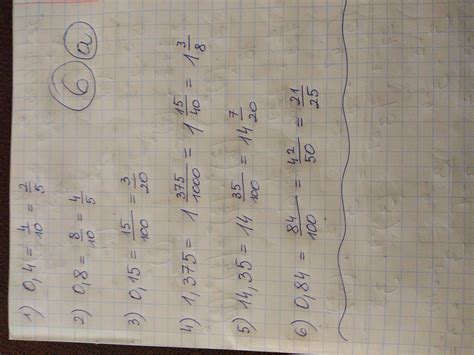 6 a
1) 0,4 = 4/10 = 2/5
2) 0,8 = 8/10 = 4/5
3) 0,15 = 15/100 = 3/20
4) 1,375 = 1 375/1000 = 1 15/40 = 1 3/8
5) 14,35 = 14 35/100 = 14 7/20
6) 0,84 = 84/100 = 42/50 = 21/25